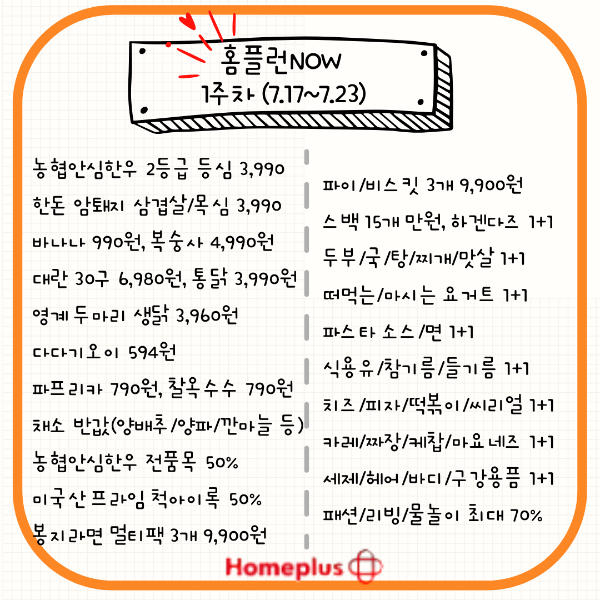 홈플런NOW
1주차 (7.17~7.23)
농협안심한우 2등급 등심 3,990
한돈 암퇘지 삼겹살/목심 3,990
바나나 990원, 복숭사 4,990원
대란 30구 6,980원, 통닭 3,990원
영계 두마리 생닭 3,960원
다다기오이 594원
파프리카 790원, 찰옥수수 790원
채소 반값(양배추/양파/깐마늘 등)
농협안심한우 전품목 50%
미국산 프라임 척아이롤 50%
봉지라면 멀티팩 3개 9,900원
파이/비스킷 3개 9,900원
스백 15개 만원, 하겐다즈 1+1
두부/국/탕/찌개/맛살 1+1
떠먹는/마시는 요거트 1+1
파스타 소스/면 1+1
식용유/참기름/들기름 1+1
치즈/피자/떡볶이/씨리얼 1+1
카레/짜장/케찹/마요네즈 1+1
세제/헤어/바디/구강용픔 1+1
패션/리빙/물놀이 최대 70%
Homeplus